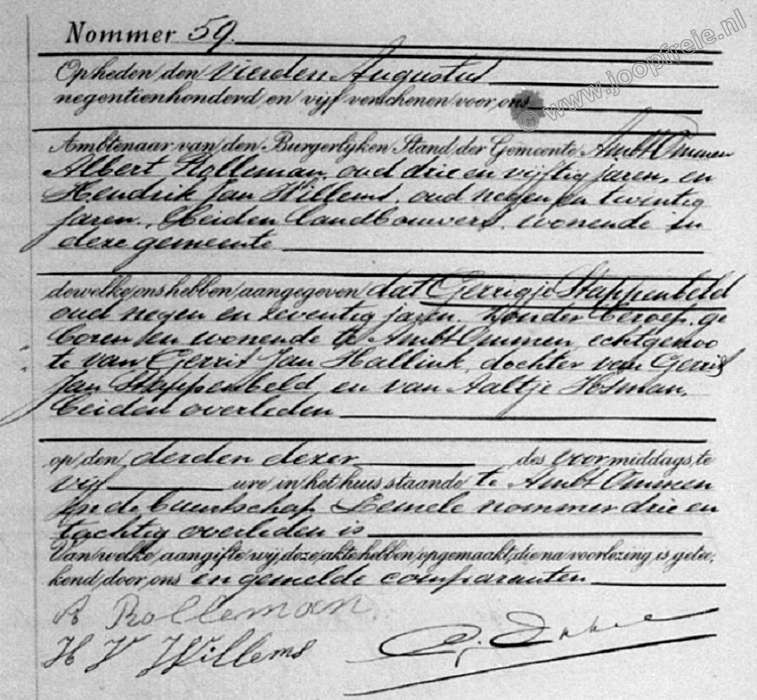 © www.joopfreie.nl
Nommer 59.
Op heden den vierden Augustus
negentienhonderd en vijf verschenen voor ons
Ambtenaar van den Burgerlijken Stand der Gemeente Ambt Ommen
Albert Rolleman, oud drie en vijftig jaren, en
Hendrik Jan Willems, oud negen en twintig
jaren, beiden landbouwers, wonende in
deze gemeente
dewelke ons hebben aangegeven dat Gerrigje Stappenbeld
oud negen en zeventig jaren, zonder beroep, ge
boren en wonende te Ambt Ommen, echtgenoo
te van Gerrit Jan Hallink, dochter van Gerrit
Jan Stappenbeld en van Aaltje Hosman,
beiden overleden
op den derden dezer des voormiddags, te
vijf ure, in het huis staande te Ambt Ommen
in de buurtschap Lemele nommer drie en
tachtig overleden is
Van welke aangifte wij deze akte hebben opgemaakt, die na voorlezing is getee-
kend door ons en gemelde comparanten
A Rolleman.
H J Willems